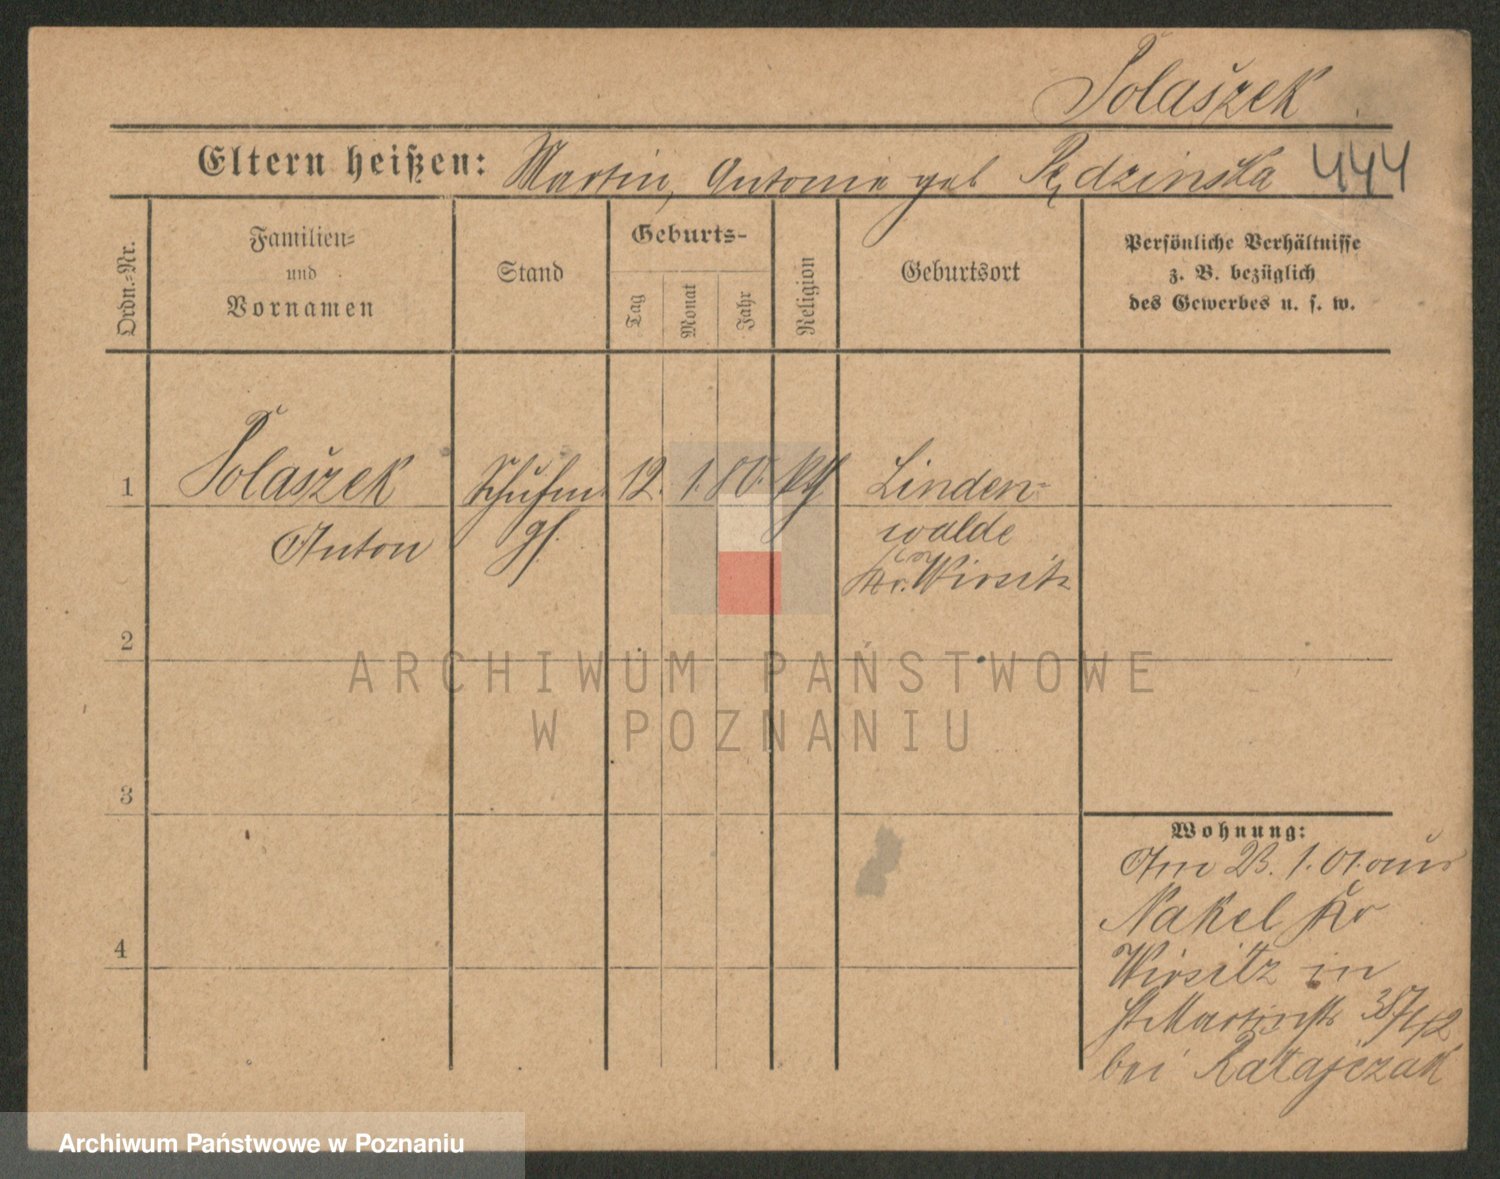 Polaszek
Eltern heißen: Martin, Antonie geb Pędzinska 444
Ordn.-Nr.
Familien-
und
Vornamen
Stand
Geburts-
Tag
Monat
Jahr
Religion
Geburtsort
Persönliche Verhältnisse
z. B. bezüglich
des Gewerbes u. s. w.
1 Polaszek 12. 1. 80. kth Linden-
Anton walde
Kr. Wirsitz
2
3
4
Wohnung:
Am 23. 1. 01. aus
Nakel Kr
Wirsitz in
St Martinstr
bei Ratajczak
ARCHIWUM PAŃSTWOWE
W POZNANIU
Archiwum Państwowe w Poznaniu